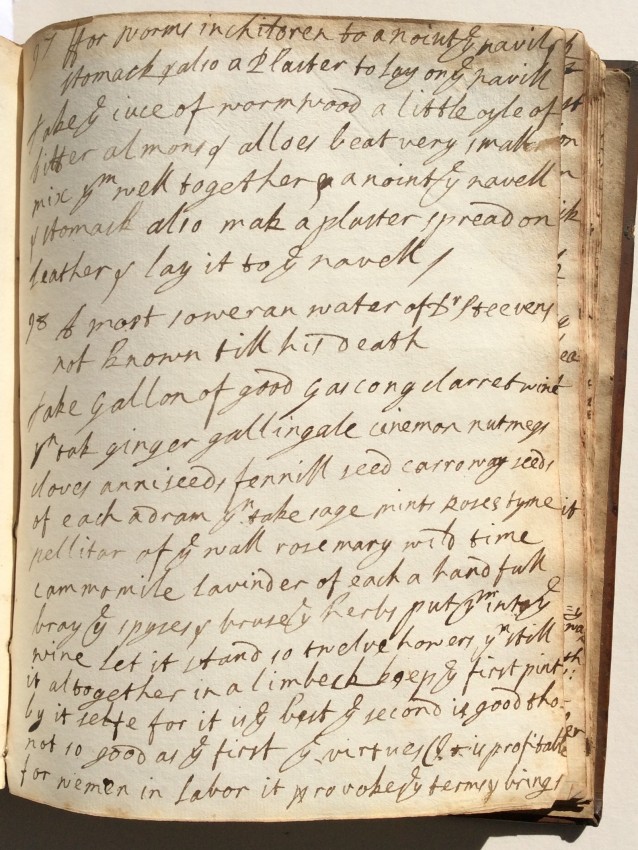 97 ffor worms in children to anoint ye navil &
stomack & also a Plaster to lay on ye navill
take ye iuce of wormwood a little oyle of
bitter almons & alloes beat very small
mix ym well together & anoint ye navell
& stomack also mak a plaster spread on
leather & lay it to ye navell /
98 A most soweran water of Dr Steevens
not known till his death
take Gallon of good Gascong clarret wine
yn tak ginger gallingale cinemon nutmegs
cloves anniseeds fennill seed carroway seeds
of each a dram yn take sage mints Roses tyme
pellitar of ye wall rosemary wild time
cammomile lavinder of each a handfull
bray ye spyses & bruse ye herbs put ym into ye
wine let it stand so twelve howers yn still
it altogether in a limbeck keep ye first pint
by it selfe for it is ye best ye second is good tho
not so good as ye first ye virtues is profitable
for wemen in labor it provoke ye terms & brings